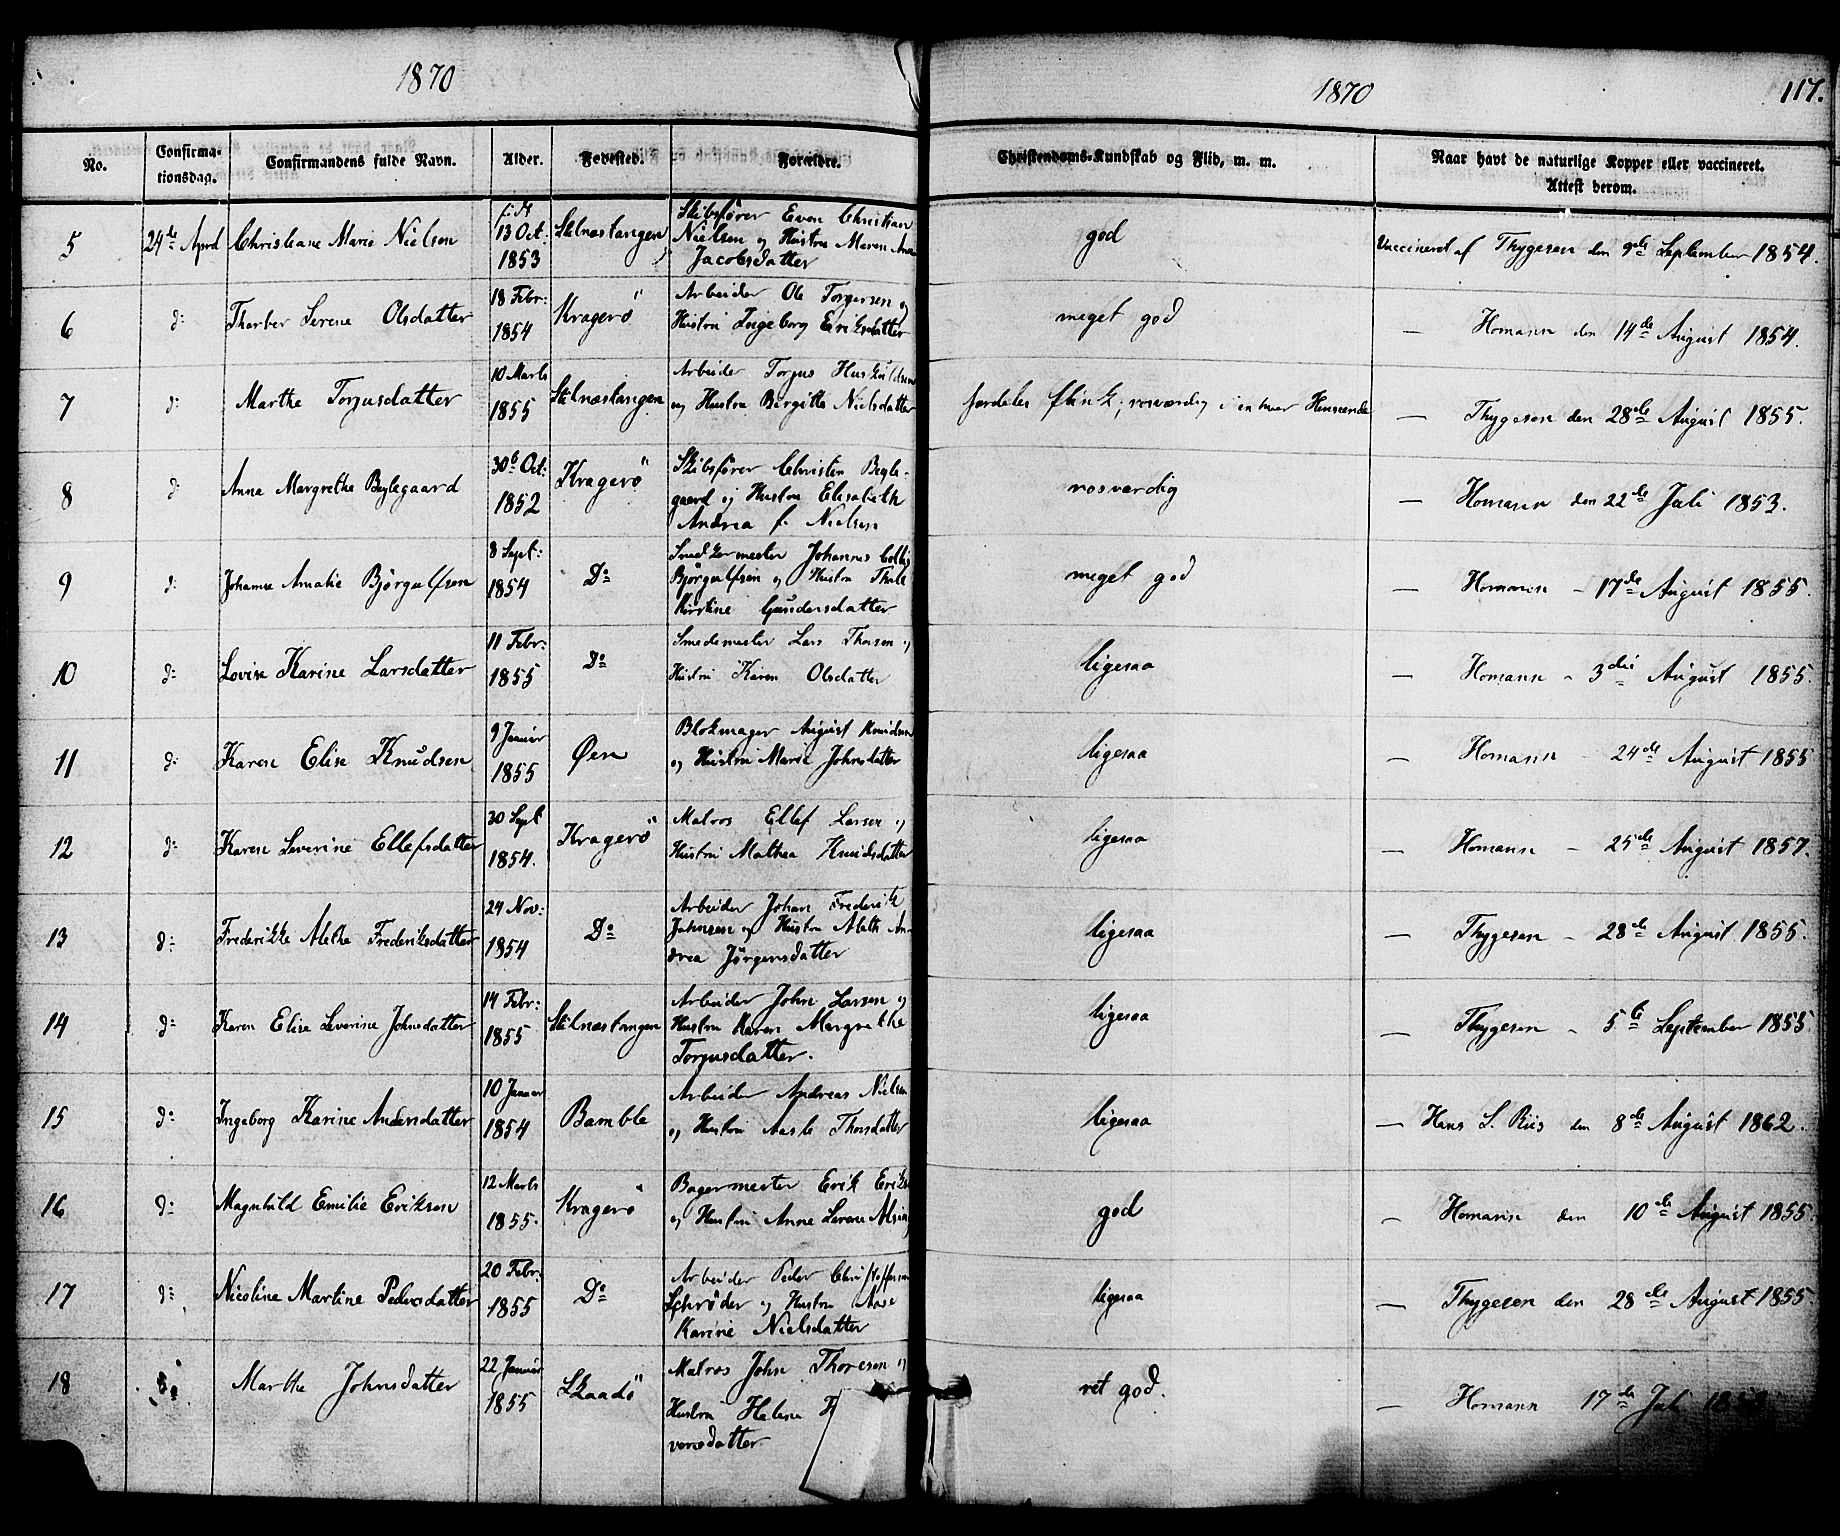 1870
No.
Confirma-
tionsdag.
Confirmandens fulde Navn.
Alder.
Fødested.
Forældre.
5
24de April
Christiane Marie Nielsen
født
13 Oct:
1853
Stilnæstangen
Skibsfører Even Christian
Nielsen og Hustru Maren Ane
Jacobsdatter
6
d:
Thorber Serene Olsdatter
18 Febr:
1854
Kragerö
Arbeider Ole Torgersen og
Hustru Ingeborg Eriksdatter
7
d:
Marthe Torjusdatter
10 Marts
1855
Stilnæstangen
Arbeider Torjus Huskuldsen
og Hustru Birgitte Nielsdatter
8
d:
Anne Margrethe Beglegaard
30te Oct:
1852
Kragerö
Skibsfører Christen Begle-
gaard og Hustru Elisabeth
Andrea f. Nielsen
9
d:
Johanne Amalie Bjørgulfsen
8 Sept:
1854
Do
Snedkermester Johannes
Bjørgulfsen og Hustru
Kirstine Gundersdatter
10
d:
Lovise Karine Larsdatter
11 Febr:
1855
Do
Smedemester Lars Thorsen og
Hustru Karen Olsdatter
11
d:
Karen Elise Knudsen
9 Januar
1855
Øen
Blokmager August Knudsen
og Hustru Marie Johnsdatter
12
d:
Karen Severine Ellefsdatter
30 Sept
1854.
Kragerö
Matros Ellef Larsen og
Hustru Mathea Knudsdatter
13
d:
Frederikke Alethe Frederiksdatter
24 Nov:
1854
Do
Arbeider Johan Frederik
Johnsen og Hustru Aleth An-
drea Jörgensdatter
14
d:
Karen Elise Severine Johnsdatter
14 Febr:
1855
Stilnæstangen
Arbeider John Larsen og
Hustru Karen Margrethe
Torjusdatter.
15
d:
Ingeborg Karine Andersdatter
10 Januar
1854
Bamble
Arbeider Andreas Nielsen
og Hustru Aasle Thorsdatter
16
d:
Magnhild Emilie Eriksen
12 Marts
1855.
Kragerö
Bagermester Erik Eriks
og Hustru Anne Serene
17
d:
Nicoline Martine Pedersdatter
20 Febr:
1855
Do
Arbeider Peder Christoffersen
Schrøder og Hustru Aase
Karine Nielsdatter
18
Marthe Johnsdatter
22 Januar
1855
Skaadö
Matros John Thoresen og
Hustru Helene
versdatter
1870
117.
Christendoms-Kundskab og Flid, m. m.
Naar havt de naturlige Kopper eller vaccineret.
Attest derom.
god
Vaccineret af Thygesen den 9de September 1854.
meget god
— Homann den 14de August 1854.
særdeles flink, rosværdig i enhver Henseende
— Thygesen den 28de August 1855.
rosværdig
— Homann den 22de Juli 1853.
meget god
— Homann - 17de August 1855.
ligesaa
— Homann - 3die August 1855.
ligesaa
— Homann - 24de August 1855
ligesaa
— Homann - 25de August 1857.
ligesaa
— Thygesen - 28de August 1855.
ligesaa
— Thygesen - 5te September 1855
ligesaa
— Hans S. Riis den 8de August 1862.
god
— Homann den 10de August 1855.
ligesaa
— Thygesen den 28de August 1855.
ret god.
— Homann 17de Juli